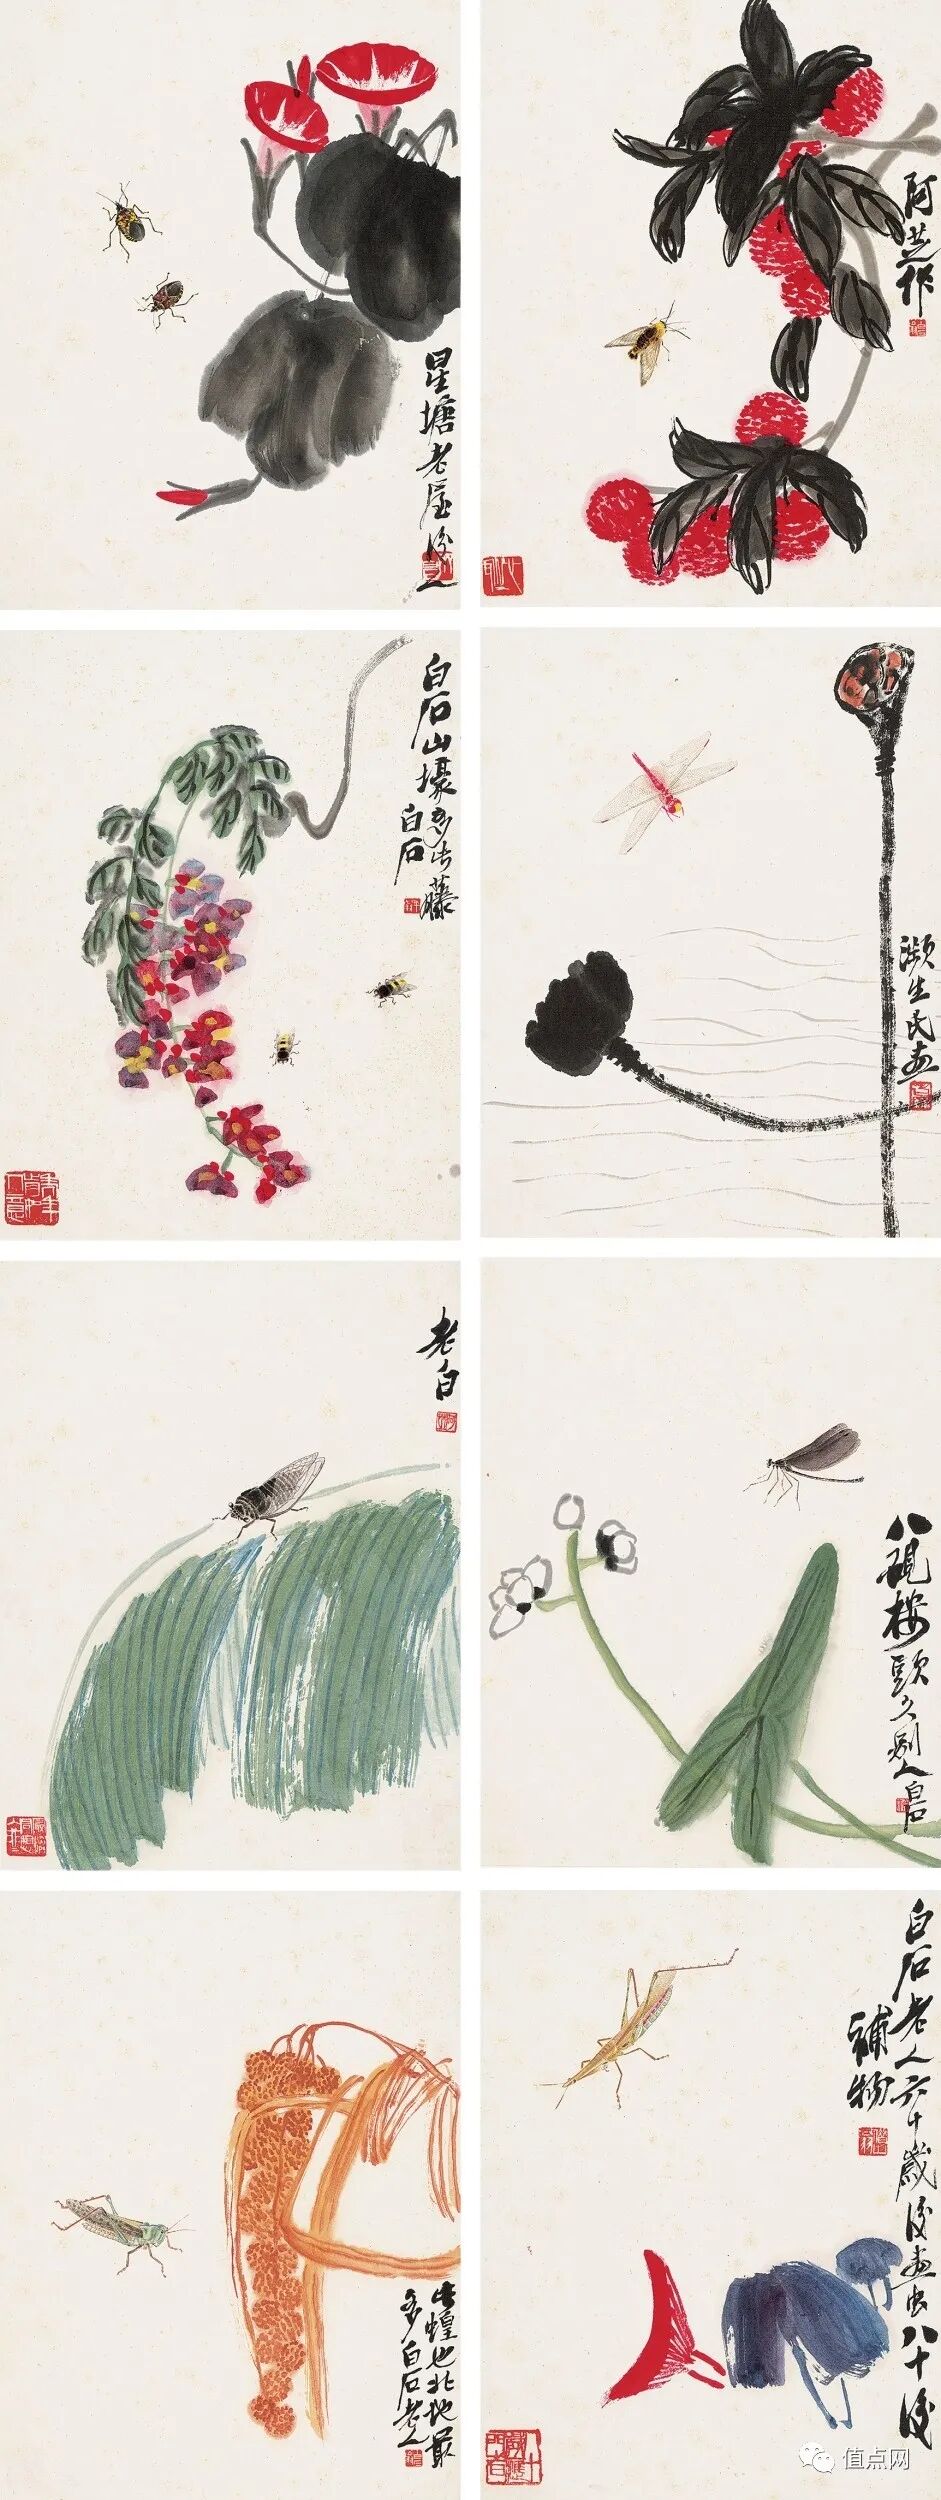 星塘老屋後人
阿芝作
白石山壕多此藤
白石
瀕生民畫
老白
八硯樓頭久別人白石
此蝗也北地最
多白石老人
白石老人六十歲後畫虫八十後
補物
值点网